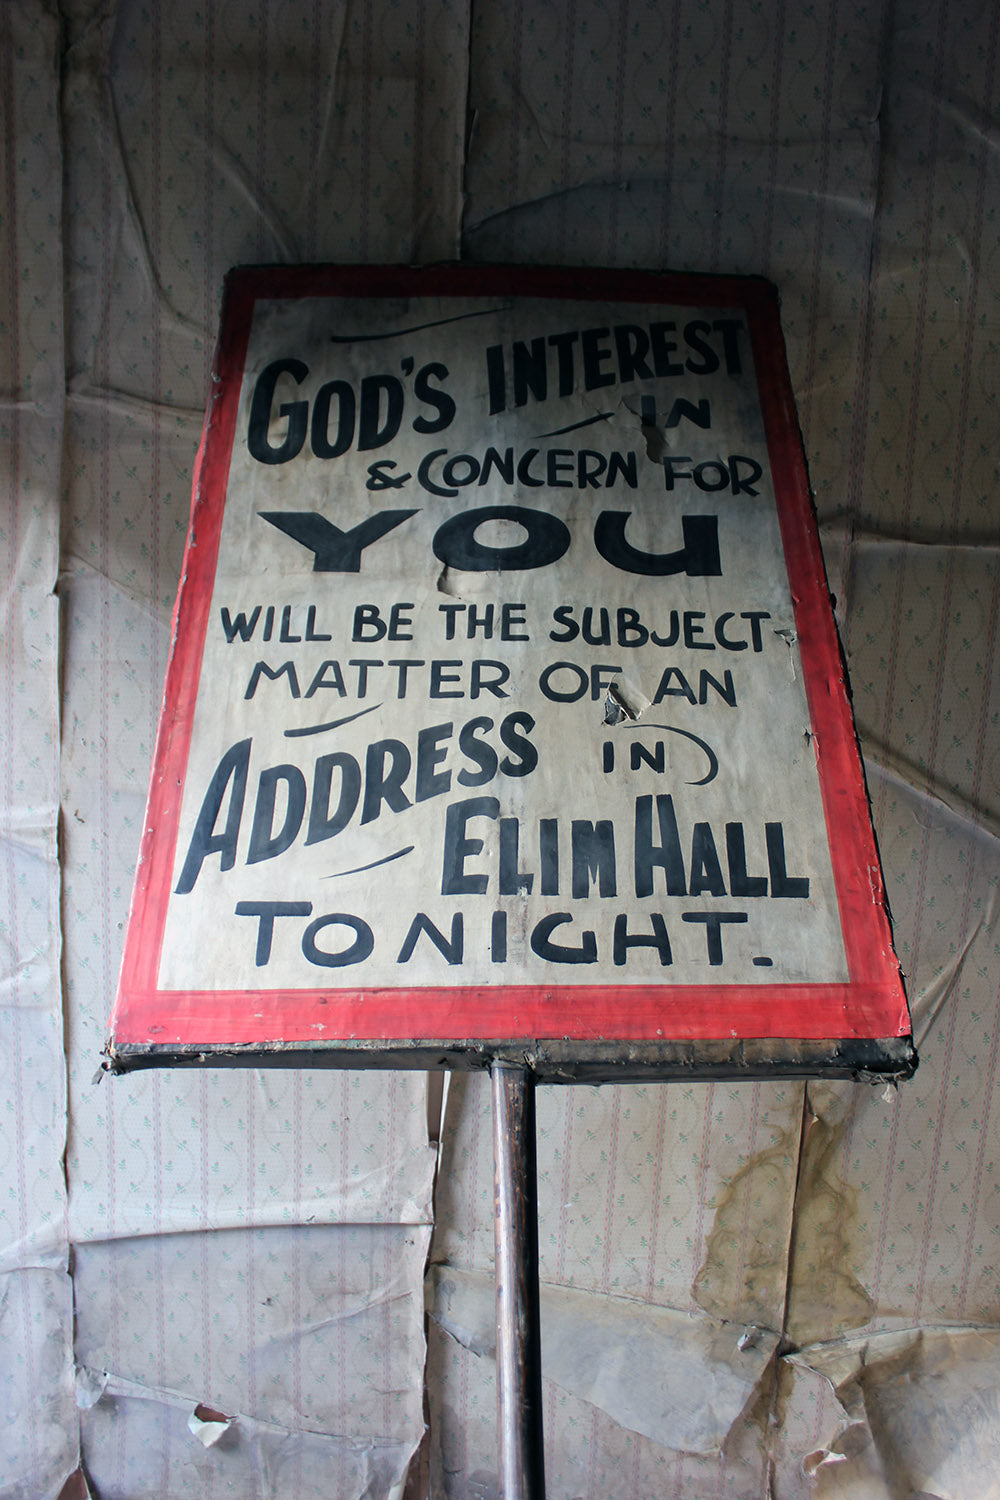 GOD'S INTEREST
IN
& CONCERN FOR
YOU
WILL BE THE SUBJECT
MATTER OF AN
ADDRESS IN
ELIM HALL
TONIGHT.